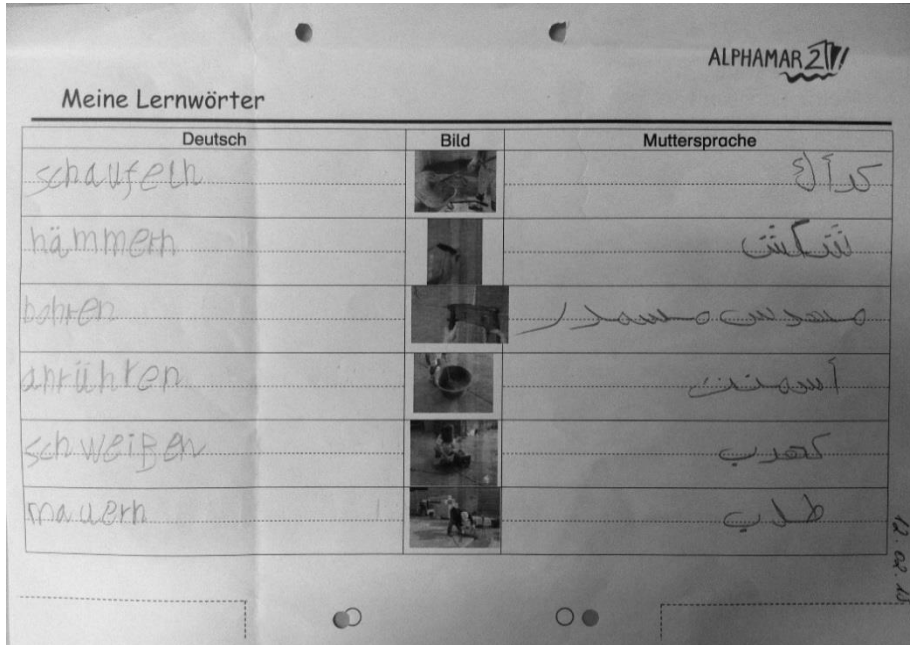 ALPHAMAR 2
Meine Lernwörter
Deutsch Bild Muttersprache
schaufeln
hämmern شكش
bohren مسدس مسمدر
anrühren أسمنت
schweißen كهرب
mauern طلب